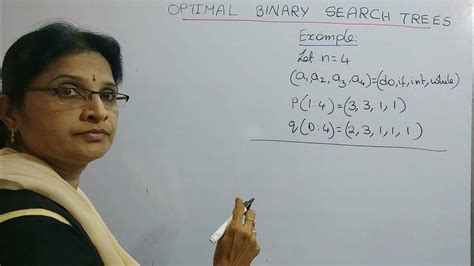 OPTIMAL BINARY SEARCH TREES
Example:
Let n=4
(a, a2, a3, a4)=(do, if, int, while)
P(1:4)=(3, 3, 1, 1)
q(0:4)=(2, 3, 1, 1, 1)